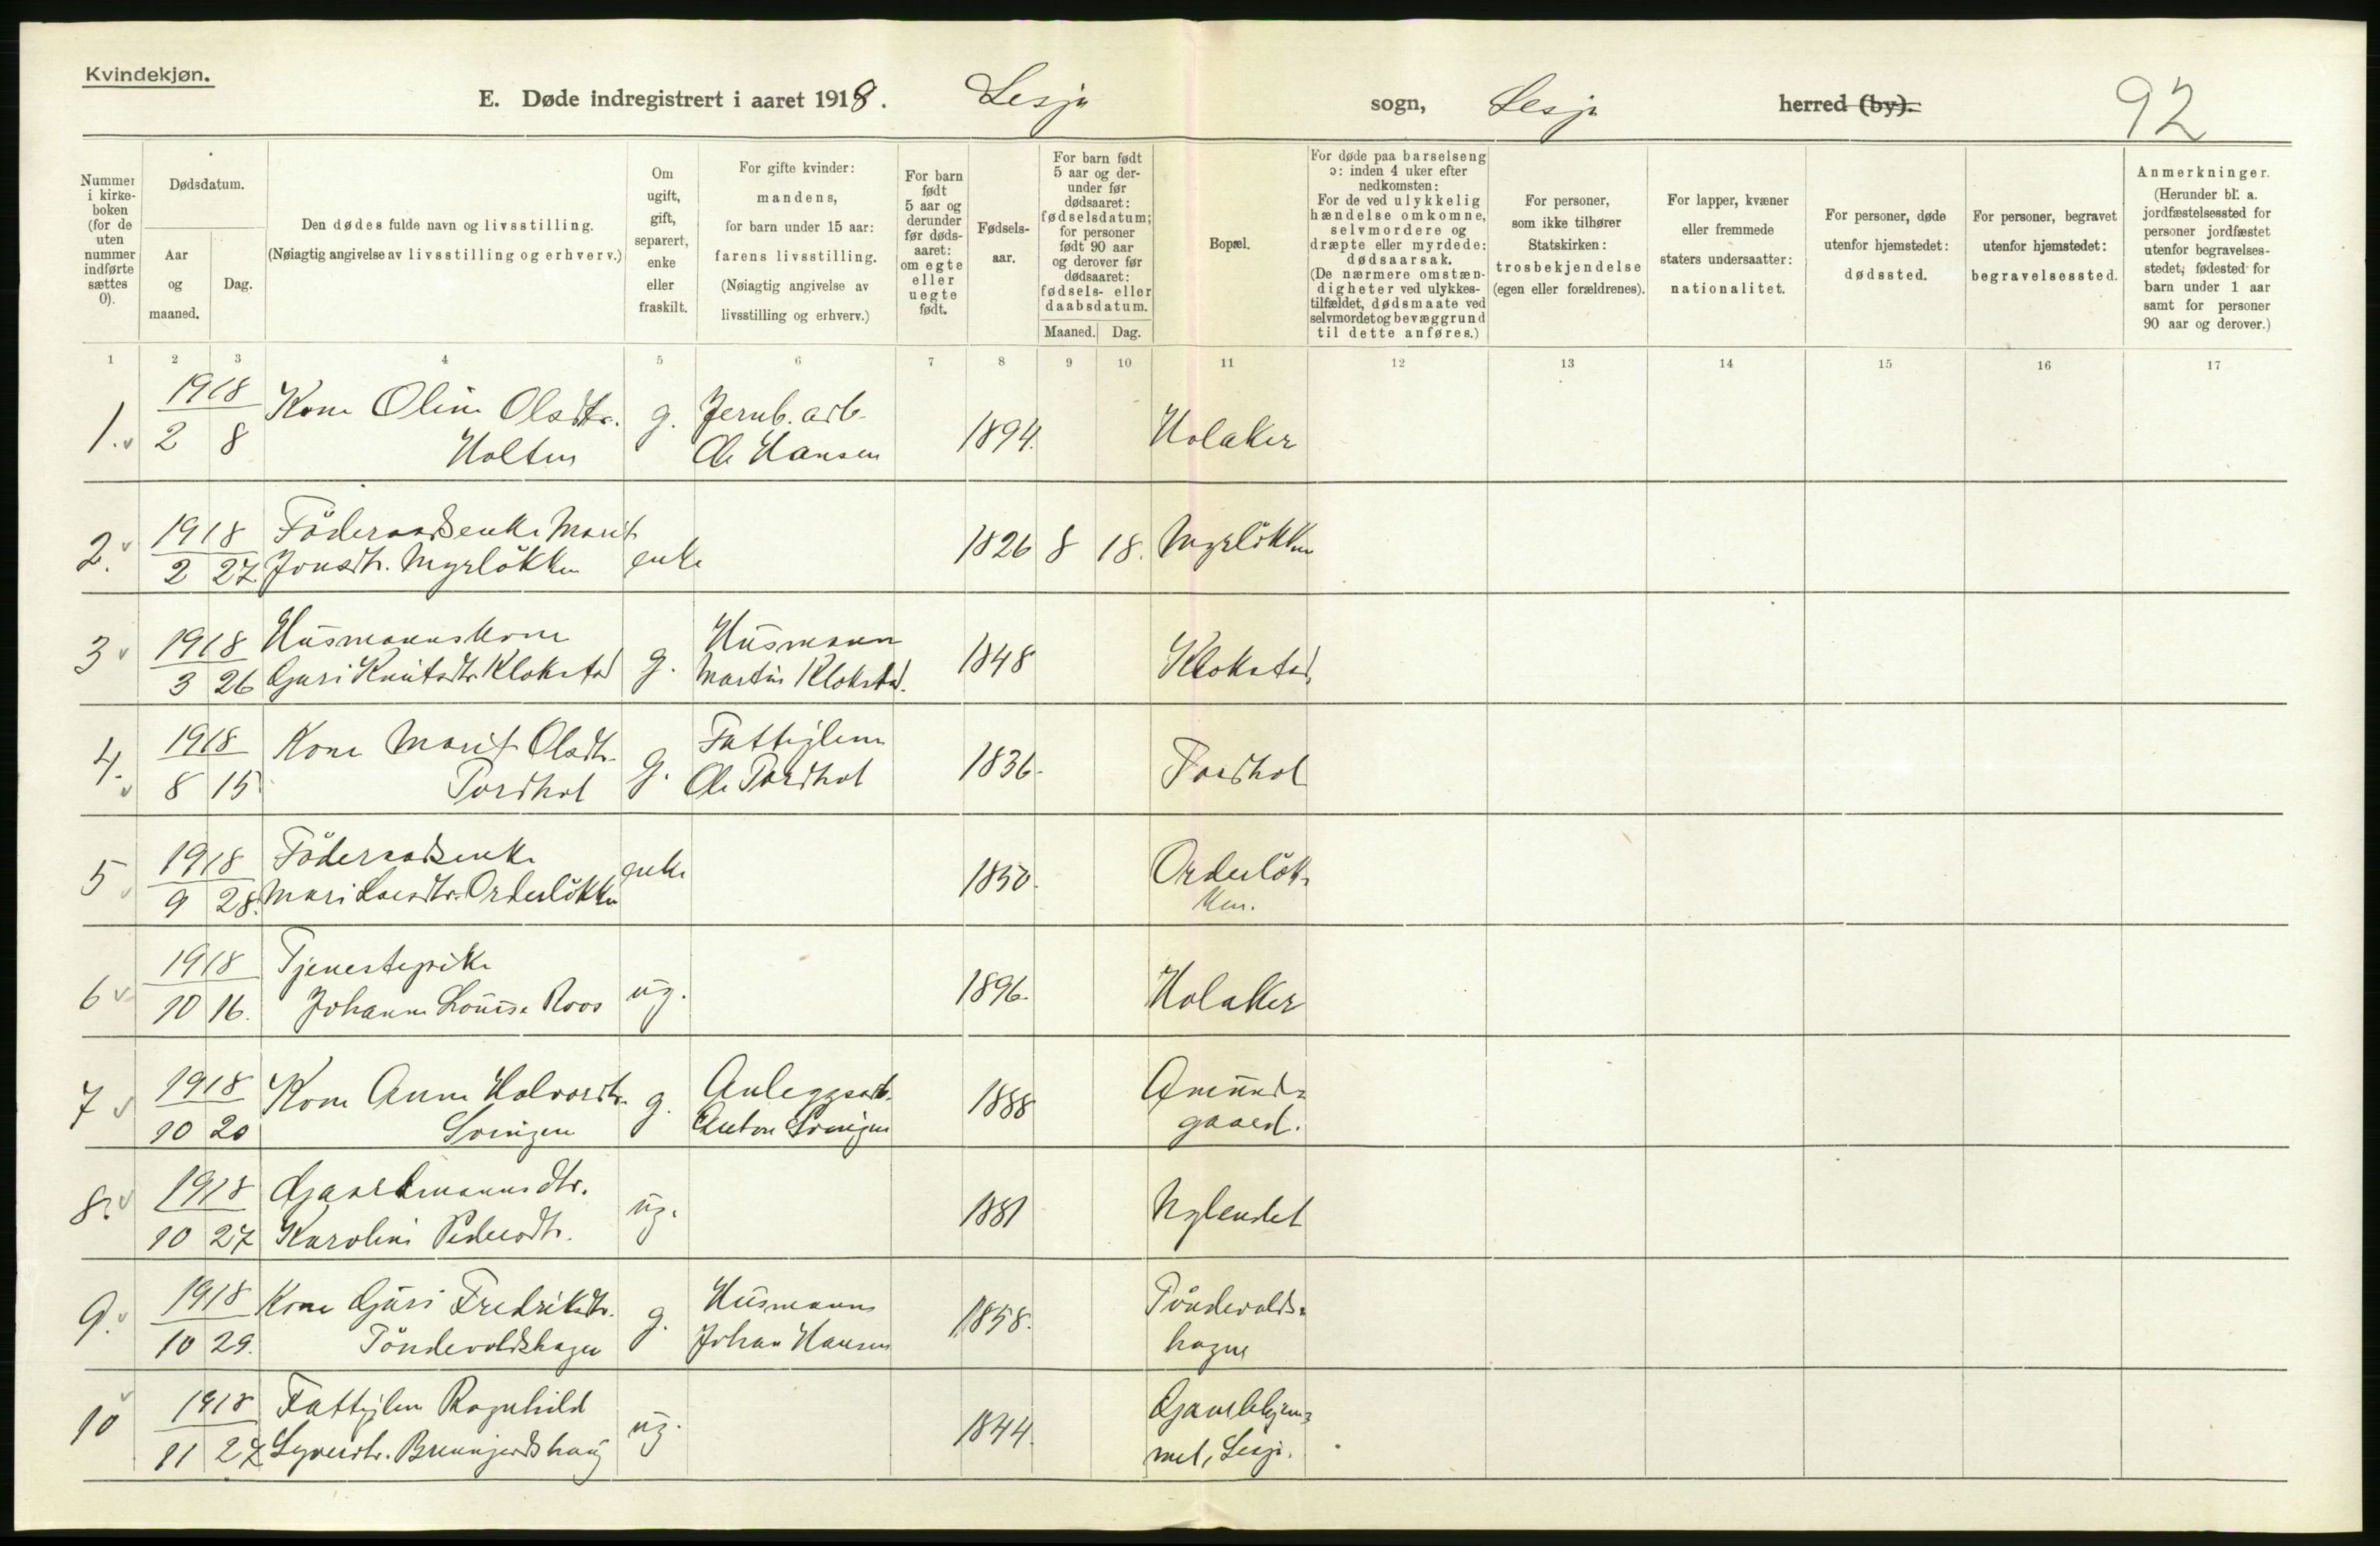 Kvindekjøn.
E. Døde indregistrert i aaret 1918. Lesja sogn, Lesja herred (by). 92
Nummer i kirkeboken (for de uten nummer indførte sættes 0).
Dødsdatum.
Aar og maaned.
Dag.
Den dødes fulde navn og livsstilling.
(Nøiagtig angivelse av livsstilling og erhverv.)
Om ugift, gift, separert, enke eller fraskilt.
For gifte kvinder:
mandens,
for barn under 15 aar:
farens livsstilling.
(Nøiagtig angivelse av
livsstilling og erhverv.)
For barn født 5 aar og derunder før dødsaaret: om egte eller uegte født.
Fødsels-
aar.
For barn født 5 aar og derunder før dødsaaret: fødselsdatum; for personer født 90 aar og derover før dødsaaret: fødsels- eller daabsdatum.
Maaned. Dag.
Bopæl.
For døde paa barselseng
ɔ: inden 4 uker efter
nedkomsten:
For de ved ulykkelig
hændelse omkomne,
selvmordere og
dræpte eller myrdede:
dødsaarsak.
(De nærmere omstæn-
digheter ved ulykkes-
tilfældet, dødsmaate ved
selvmordet og bevæggrund
til dette anføres.)
For personer,
som ikke tilhører
Statskirken:
trosbekjendelse
(egen eller forældrenes).
For lapper, kvæner
eller fremmede
staters undersaatter:
nationalitet.
For personer, døde
utenfor hjemstedet:
dødssted.
For personer, begravet
utenfor hjemstedet:
begravelsessted.
Anmerkninger.
(Herunder bl. a.
jordfæstelsessted for
personer jordfæstet
utenfor begravelses-
stedet; fødested for
barn under 1 aar
samt for personer
90 aar og derover.)
1 2 3 4 5 6 7 8 9 10 11 12 13 14 15 16 17
1. 1918 Kone Oline Olsdtr. g. Jernb. arb. 1894. Holaker
2 8 Holten Ole Hansen
2. 1918 Föderaadsenke Marit enke 1826 8 18. Myrlökken
2 27. Jonsdtr. Myrlökken
3 1918 Husmannskone g. Husmann 1848 Klokstad
3 26 Guri Knutsdtr. Klokstad Martin Klokstad.
4. 1918 Kone Marit Olsdtr. g. Fattiglem 1836. Tordhol
8 15 Tordhol Ole Tordhol
5 1918 Föderaadsenke enke 1850. Orderlök-
9 28. Mari Larsdtr. Orderlökken ken.
6 1918 Tjenestepike ug. 1896. Holaker
10 16. Johanne Louise Roos
7 1918 Kone Anne Halvorsdtr. g. Anleggsarb. 1888 Amunds-
10 20 Anton gaard.
8. 1918 Gaardmannsdtr. ug. 1881 Nylendet
10 27 Karoline Pedersdtr.
9. 1918 Kone Guri Fredriksdtr. g. Husmann 1858. Töndevolds-
10 29. Töndevoldshagen Johan Hansen hagen
10 1918 Fattiglem Ragnhild ug. 1844. Gamlehjem-
11 27 Syversdtr. met, Lesja.